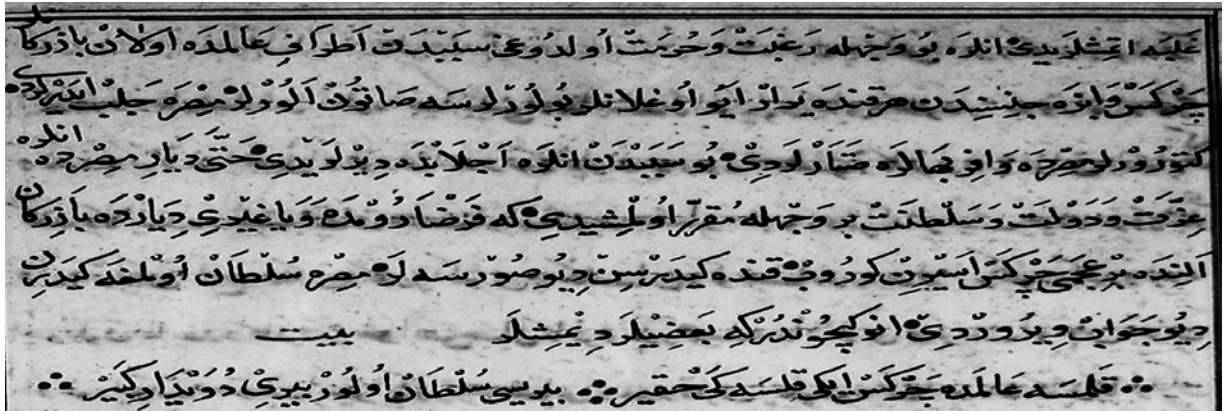 غلبه اتمشلریدی انلره بو وجهله رغبت وحرمت اولدوغی سببدن اطراف عالمده اولان بازركانلر
چركس وابزه جنسندن هر قنده یرار ایو اوغلانلر بولورلرسه صاتون الورلر مصره جلب ایدرلردی
كتورورلر مصرده وافر بهالره صتارلردی بو سببدن انلره اجلابده دیرلریدی حتی دیار مصرده انلره
عزت ودولت وسلطنت بر وجهله مقرر اولمشیدی كه فرضا رومده ویا غیری دیارده بازركان
النده بر عجمی چركس اسیرین كوروب قنده كیدرسن دیو صورسه لر مصره سلطان اولمغه كیدرین
دیو جواب ویروردی انوكیچوندر كه بعضیلر دیمشلر بیت
قلمسه عالمده چركس ایكی قلسه كی حقیر بیریسی سلطان اولور بیری دویدار كبیر